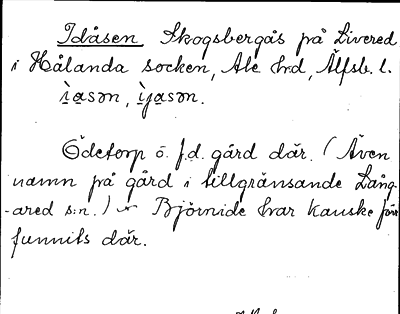 Idåsen Skogsbergås på Livered
i Hålanda socken, Ale hrd, Älfsb. l.
ìasən, ìjasən.
Ödetorp o. f.d. gård där. (Även
namn på gård i tillgränsande Lång-
-ared s:n.) Björnide har kanske förr
funnits där.